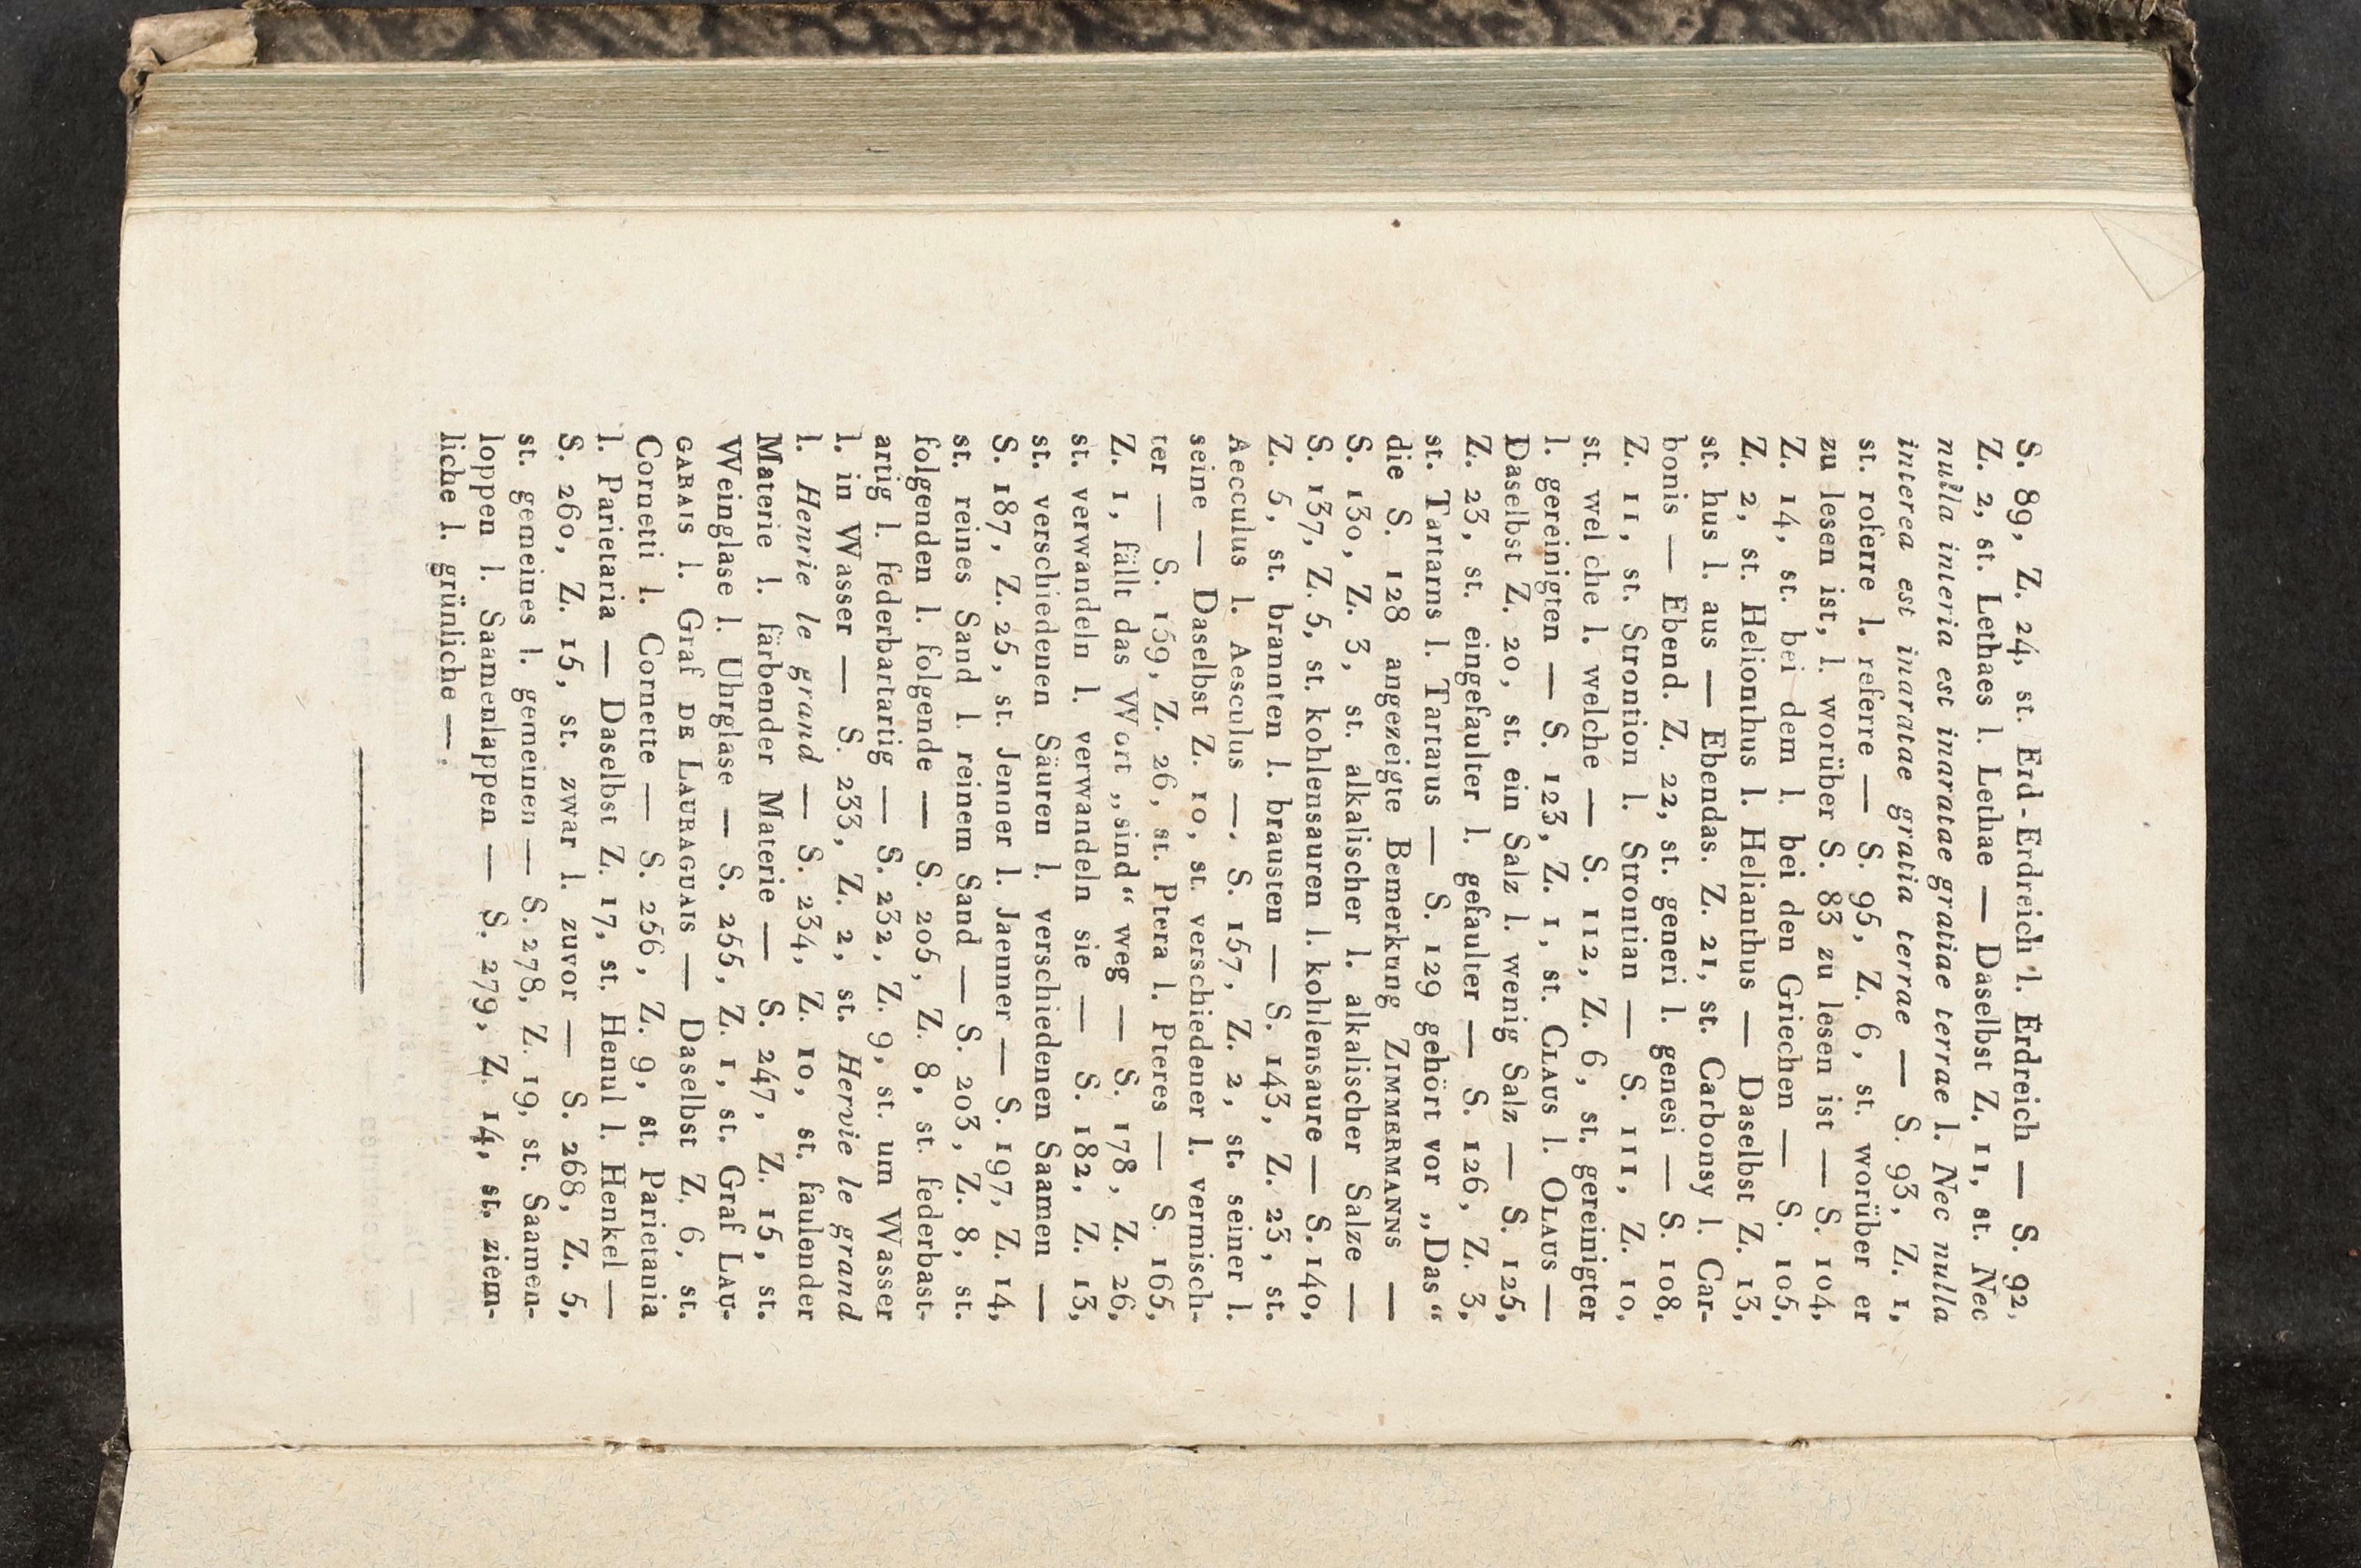 S. 89, Z. 24, st. Erd-Erdreich l. Erdreich — S. 92,
Z. 2, st. Lethaes l. Lethae — Daselbst Z. 11, st. Nec
nulla interia est inaratae gratiae terrae l. Nec nulla
interea est inaratae gratia terrae — S. 93, Z. 1,
st. roferre l. referre — S. 95, Z. 6, st. worüber er
zu lesen ist, l. worüber S. 83 zu lesen ist — S. 104,
Z. 14, st. bei dem l. bei den Griechen — S. 105,
Z. 2, st. Helionthus l. Helianthus — Daselbst Z. 13,
st. hus l. aus — Ebendas. Z. 21, st. Carbonsy l. Car-
bonis — Ebend. Z. 22, st. generi l. genesi — S. 108,
Z. 11, st. Strontion l. Strontian — S. 111, Z. 10,
st. wel che l. welche — S. 112, Z. 6, st. gereinigter
l. gereinigten — S. 123, Z. 1, st. CLAUS l. OLAUS —
Daselbst Z. 20, st. ein Salz l. wenig Salz — S. 125,
Z. 23, st. eingefaulter l. gefaulter — S. 126, Z. 3,
st. Tartarns l. Tartarus — S. 129 gehört vor „Das“
die S. 128 angezeigte Bemerkung ZIMMERMANNS —
S. 130, Z. 3, st. alkalischer l. alkalischer Salze —
S. 137, Z. 5, st. kohlensauren l. kohlensaure — S. 140,
Z. 5, st. brannten l. brausten — S. 143, Z. 23, st.
Aecculus l. Aesculus —, S. 157, Z. 2, st. seiner l.
seine — Daselbst Z. 10, st. verschiedener l. vermisch-
ter — S. 159, Z. 26, st. Ptera l. Pteres — S. 165,
Z. 1, fällt das Wort „sind“ weg — S. 178, Z. 26,
st. verwandeln l. verwandeln sie — S. 182, Z. 13,
st. verschiedenen Säuren l. verschiedenen Saamen —
S. 187, Z. 25, st. Jenner l. Jaenner — S. 197, Z. 14,
st. reines Sand l. reinem Sand — S. 203, Z. 8, st.
folgenden l. folgende — S. 205, Z. 8, st. federbast-
artig l. federbartartig — S. 232, Z. 9, st. um Wasser
l. in Wasser — S. 233, Z. 2, st. Hervie le grand
l. Henrie le grand — S. 234, Z. 10, st. faulender
Materie l. färbender Materie — S. 247, Z. 15, st.
Weinglase l. Uhrglase — S. 255, Z. 1, st. Graf LAU-
GARAIS l. Graf DE LAURAGUAIS — Daselbst Z. 6, st.
Cornetti l. Cornette — S. 256, Z. 9, st. Parietania
l. Parietaria — Daselbst Z. 17, st. Henul l. Henkel —
S. 260, Z. 15, st. zwar l. zuvor — S. 268, Z. 5,
st. gemeines l. gemeinen — S. 278, Z. 19, st. Saamen-
loppen l. Saamenlappen — S. 279, Z. 14, st. ziem-
liche l. grünliche —.